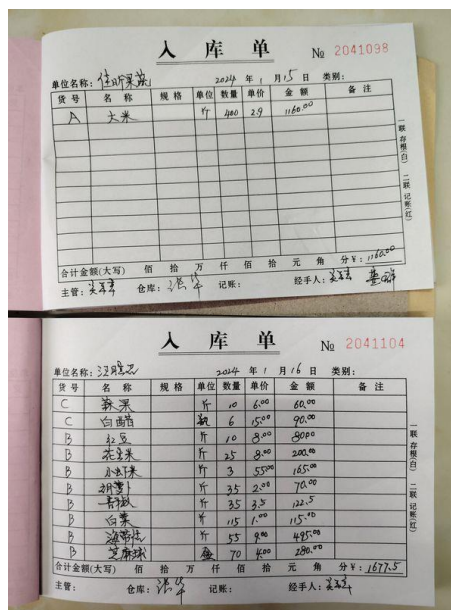 入库单 № 2041098
单位名称：佳昕果蔬 2024年1月15日 类别：
货号 名称 规格 单位 数量 单价 金额 备注
A 大米 斤 400 2.9 1160.00
合计金额(大写) 佰 拾 万 仟 佰 拾 元 角 分 ¥：1160.00
主管： 仓库： 记账： 经手人：
一联 存根(白) 二联 记账(红)
入库单 № 2041104
单位名称： 2024年1月16日 类别：
货号 名称 规格 单位 数量 单价 金额 备注
C 斤 10 6.00 60.00
C 白醋 瓶 6 15.00 90.00
B 红豆 斤 10 8.00 80.00
B 花生米 斤 25 8.00 200.00
B 小虾米 斤 3 55.00 165.00
B 胡萝卜 斤 35 2.00 70.00
B 斤 35 3.5 122.5
B 白菜 斤 115 1.00 115.00
B 海带结 斤 55 9.00 495.00
B 芝麻球 盒 70 4.00 280.00
合计金额(大写) 佰 拾 万 仟 佰 拾 元 角 分 ¥：1677.5
主管： 仓库： 记账： 经手人：
一联 存根(白) 二联 记账(红)